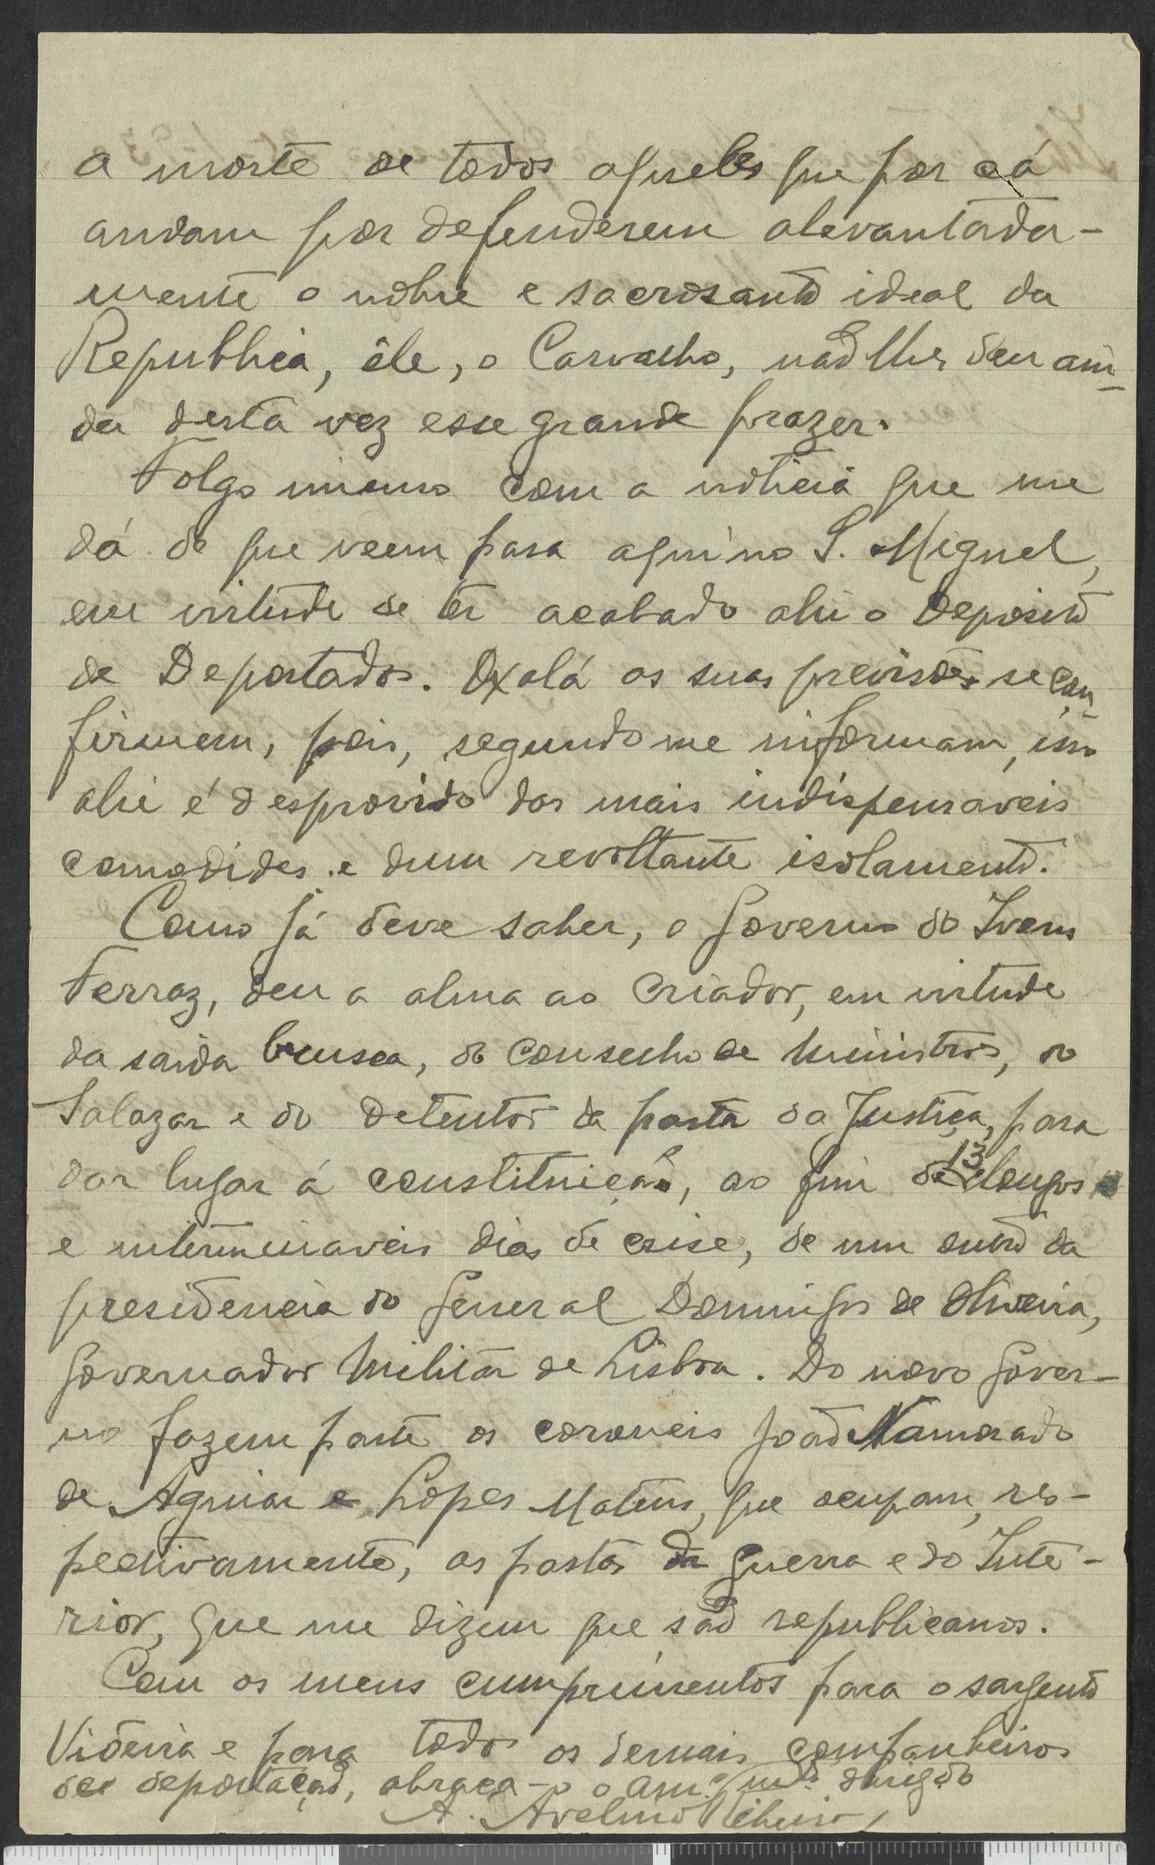 a morte de todos aqueles que por cá
andam por defenderem alevantada-
mente o nobre e sacrosanto ideal da
Republica, êle, o Carvalho, não lhes deu ain-
da desta vez esse grande prazer.
Folgo imenso com a noticia que me
dá de que veem para aqui no S. Miguel,
em virtude de ter acabado ahi o Deposito
de Deportados. Oxalá as suas previsões se con-
firmem, pois, segundo me informam, isso
ahi é desprovido das mais indispensaveis
comodides e dum revoltante isolamento.
Como já deve saber, o Governo do Ivens
Ferraz, deu a alma ao Criador, em virtude
da saida brusca, do Conselho de Ministros, do
Salazar e do detentor da pasta da Justiça, para
dar lugar á constituição, ao fim de 13 longos
e interminaveis dias de crise, de um outro da
presidencia do General Domingos de Oliveira,
Governador Militar de Lisboa. Do novo Gover-
no fazem parte os coroneis João Namorado
de Aguiar e Lopes Mateus, que ocupam, res-
pectivamente, as pastas da Guerra e do Inte-
rior, que me dizem que são republicanos.
Com os meus cumprimentos para o sargento
Videira e para todos os demais companheiros
de deportação, abraça-o o am.º m.to obrigdo
A. Avelino Ribeiro